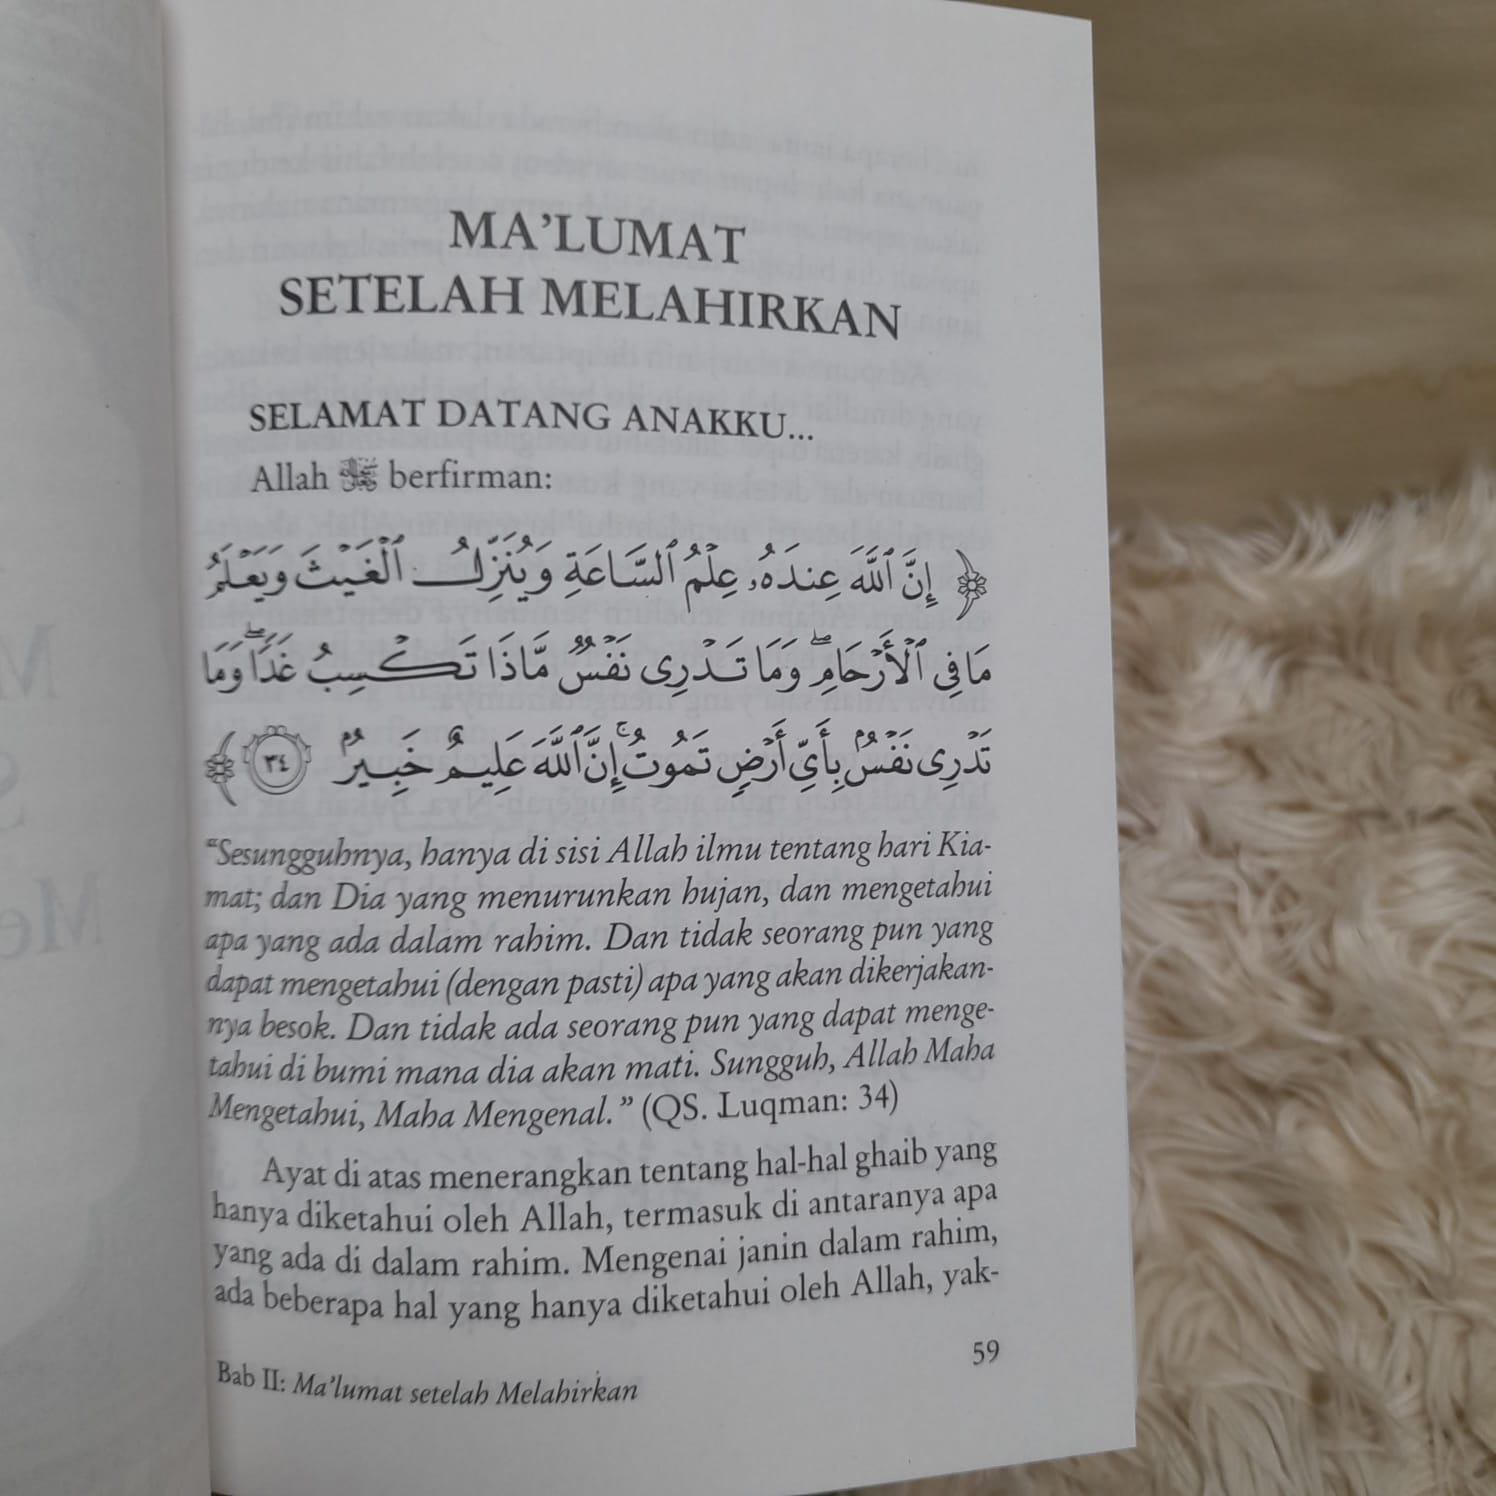 MA’LUMAT
SETELAH MELAHIRKAN
SELAMAT DATANG ANAKKU...
Allah ﷻ berfirman:
﴿ إِنَّ ٱللَّهَ عِندَهُۥ عِلْمُ ٱلسَّاعَةِ وَيُنَزِّلُ ٱلْغَيْثَ وَيَعْلَمُ
مَا فِى ٱلْأَرْحَامِ ۖ وَمَا تَدْرِى نَفْسٌ مَّاذَا تَكْسِبُ غَدًا ۖ وَمَا
تَدْرِى نَفْسٌۢ بِأَىِّ أَرْضٍ تَمُوتُ ۚ إِنَّ ٱللَّهَ عَلِيمٌ خَبِيرٌۢ ٣٤ ﴾
“Sesungguhnya, hanya di sisi Allah ilmu tentang hari Kia-
mat; dan Dia yang menurunkan hujan, dan mengetahui
apa yang ada dalam rahim. Dan tidak seorang pun yang
dapat mengetahui (dengan pasti) apa yang akan dikerjakan-
nya besok. Dan tidak ada seorang pun yang dapat menge-
tahui di bumi mana dia akan mati. Sungguh, Allah Maha
Mengetahui, Maha Mengenal.” (QS. Luqman: 34)
Ayat di atas menerangkan tentang hal-hal ghaib yang
hanya diketahui oleh Allah, termasuk di antaranya apa
yang ada di dalam rahim. Mengenai janin dalam rahim,
ada beberapa hal yang hanya diketahui oleh Allah, yak-
59
Bab II: Ma’lumat setelah Melahirkan